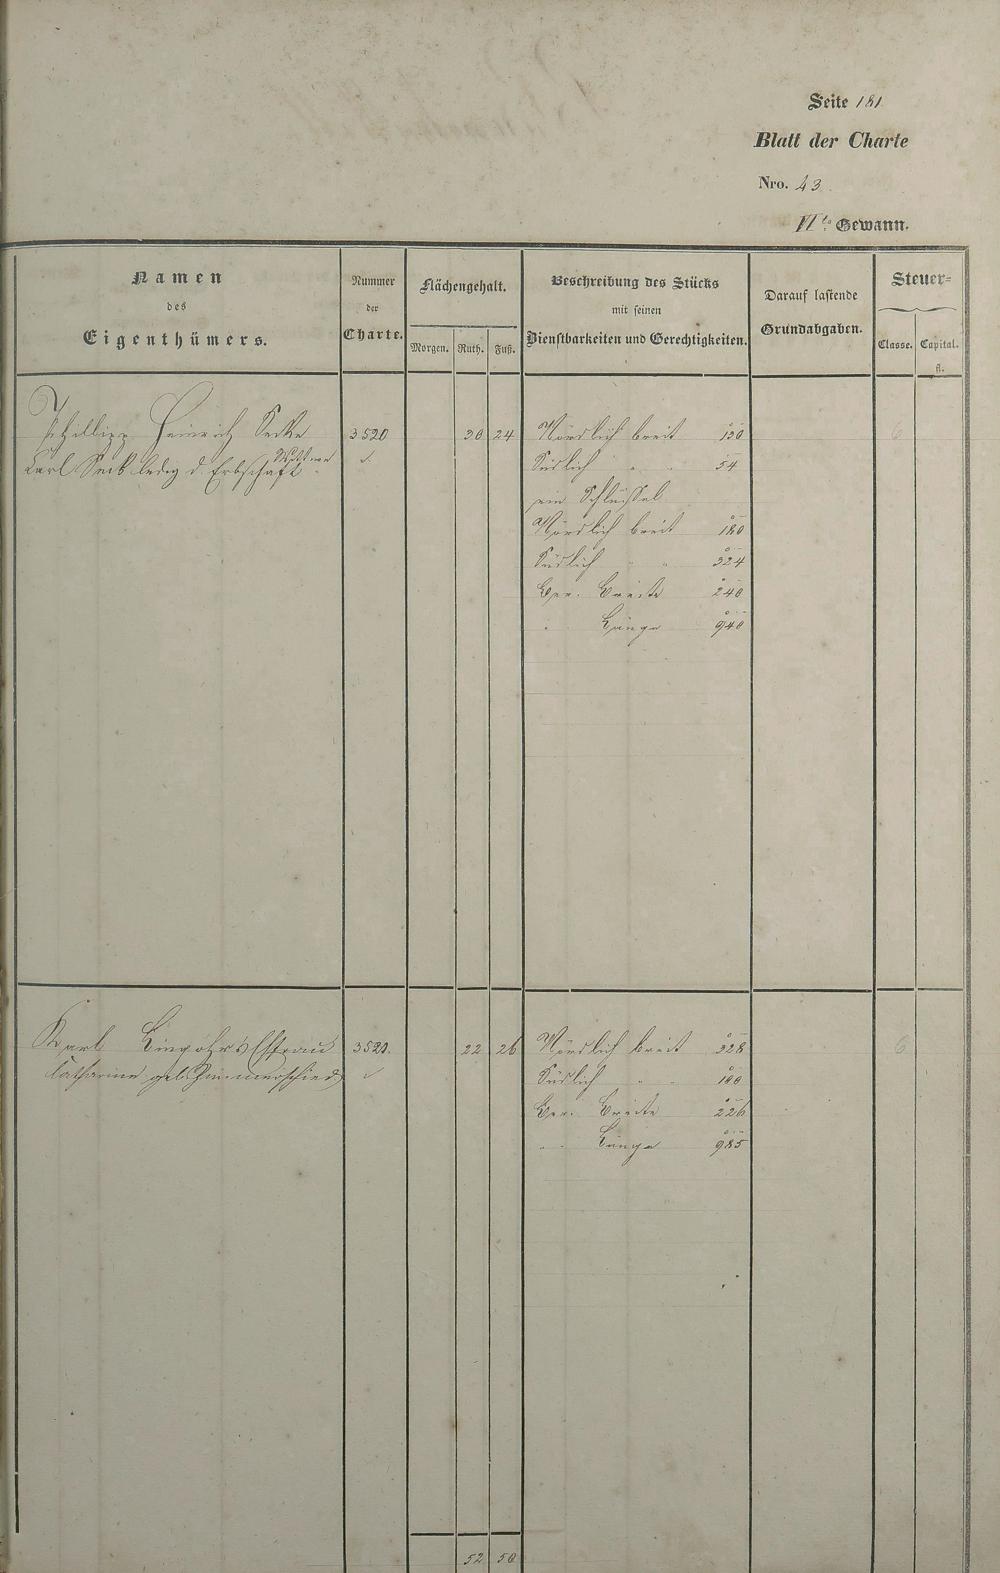 Seite 181
Blatt der Charte
Nro. 43.
VIte Gewann.
Namen
des
Eigenthümers.
Nummer
der
Charte.
Flächengehalt.
Morgen. Ruth. Fuß.
Beschreibung des Stücks
mit seinen
Dienstbarkeiten und Gerechtigkeiten.
Darauf lastende
Grundabgaben.
Steuer=
Classe. Capital.
fl.
Philipp Heinrich 3520 30 24 Nördlich breit 130 6
Wittwe
Karl Seck ledig d. Erbschaft Südlich " " 54
ein Schlüssel
Nördlich breit 180
Südlich " " 324
Ger. Breite 240
" Länge 940
Karl Lingohr's Ehfrau 3521. 22 26 Nördlich breit 328 6
Catharine geb. Zimmerschied Südlich " "
Ger. Breite 226
" " Länge 985
52 50